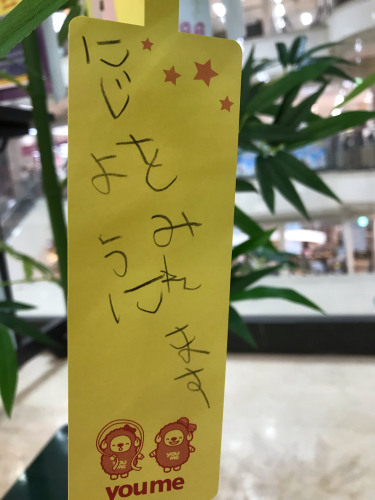 にじをみれます
ように
YOU
ME
youme